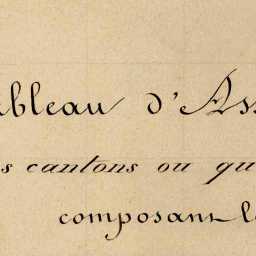 ableau d'Ass
s cantons ou qu
composant l